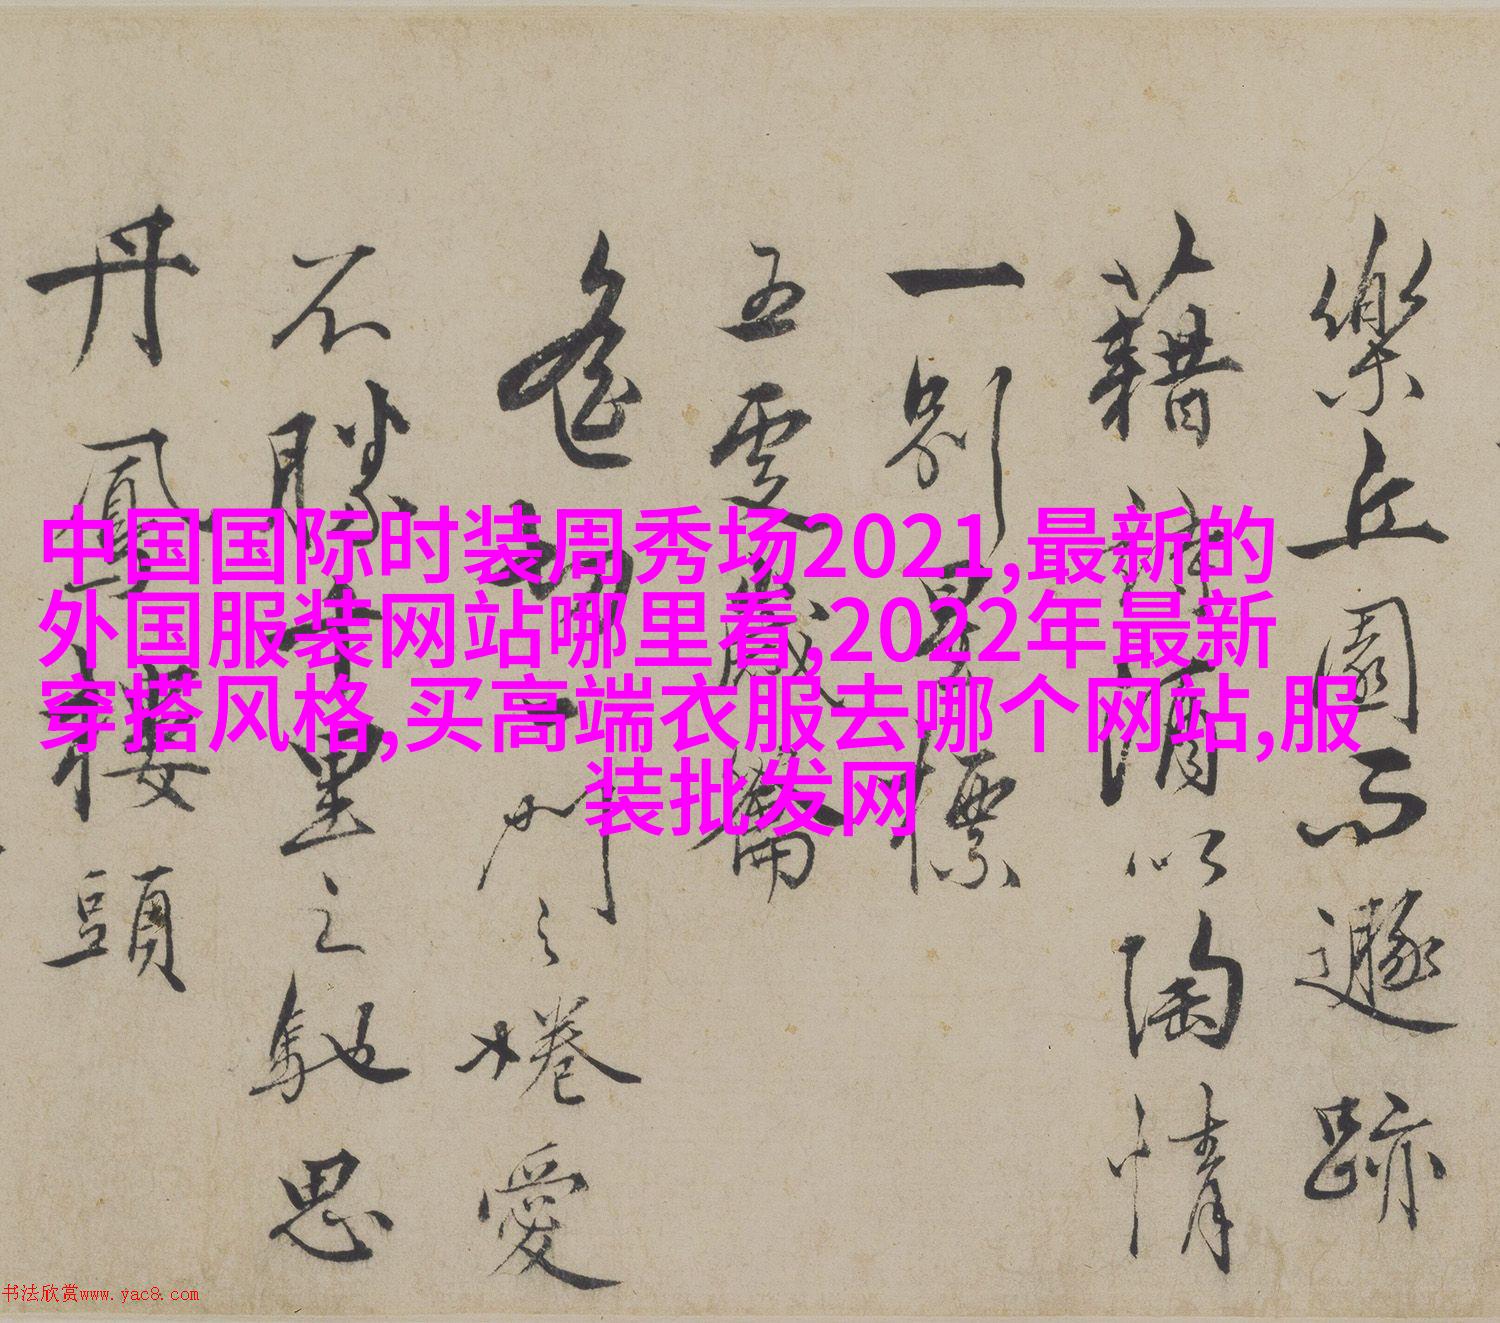 樂丘園而遯跡
藉詩酒以陶情
一別星標
五更歲籥
遙切門之惓愛
不勝千里之馳思
丹鳳樓頭
中国国际时装周秀场2021,最新的
外国服装网站哪里看,2022年最新
穿搭风格,买高端衣服去哪个网站,服
装批发网
书法欣赏www.yac8.com